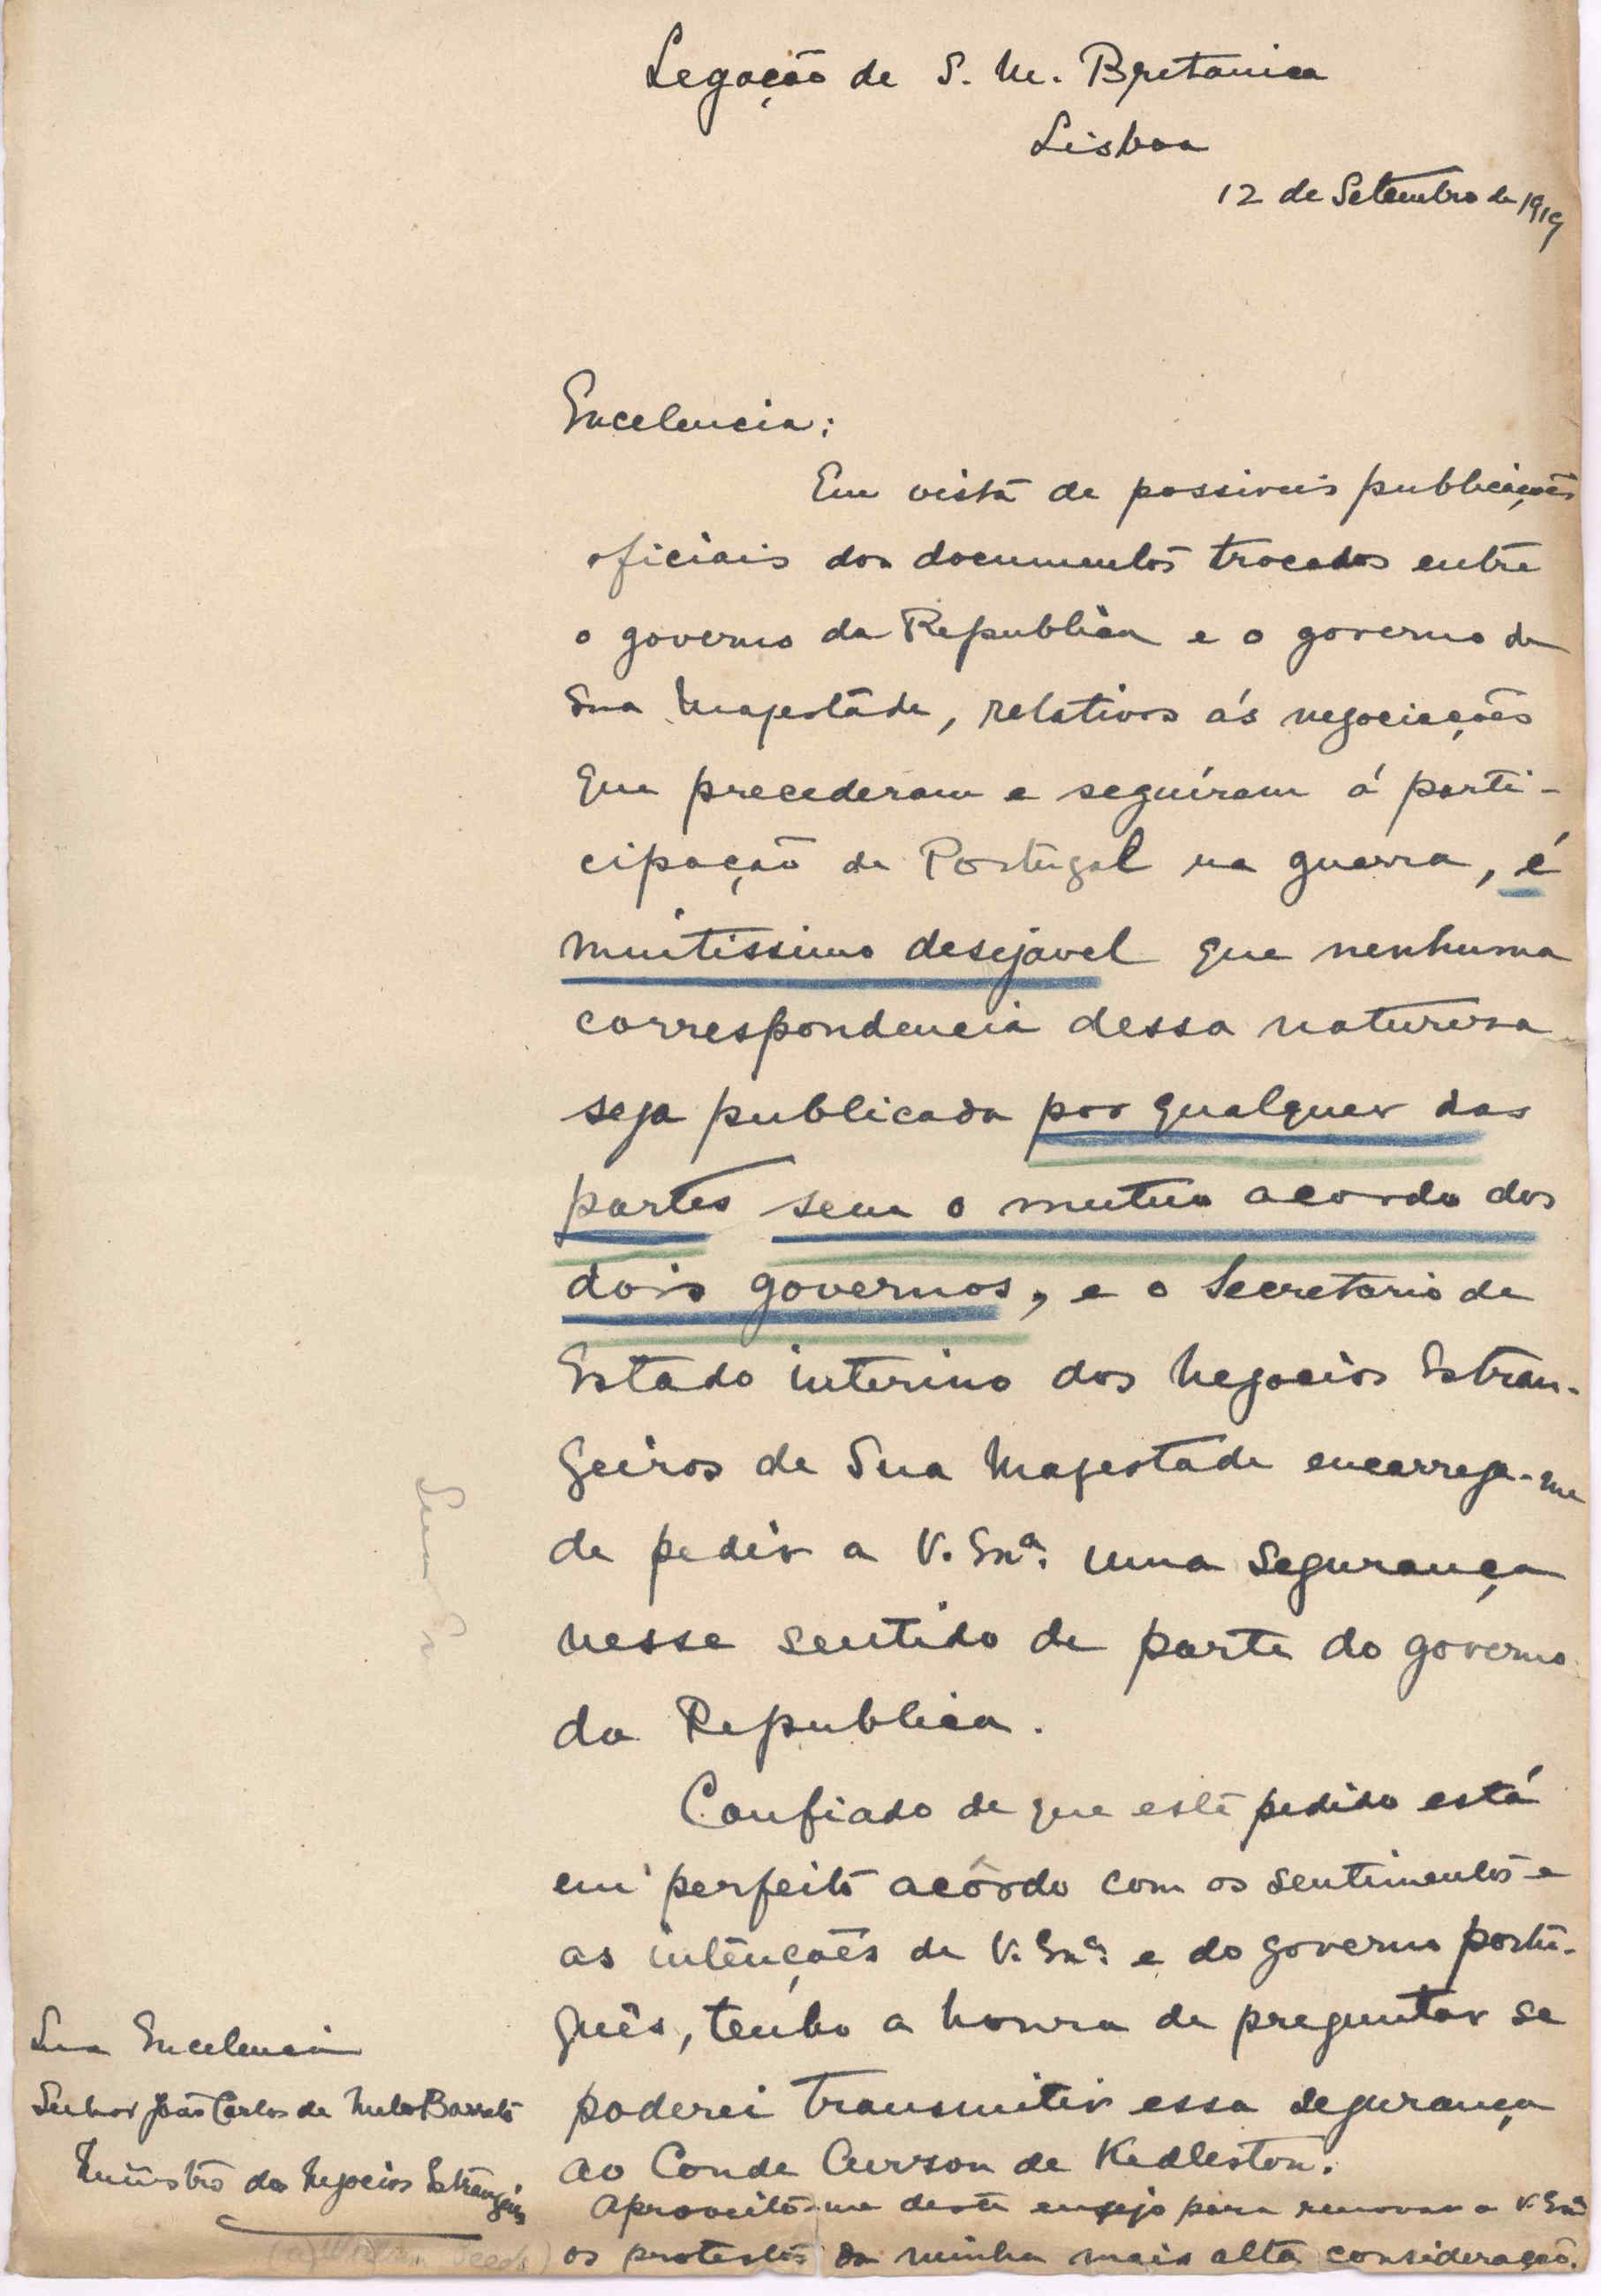 Legação de S. M. Britanica
Lisboa
12 de Setembro de 1919
Excelencia:
Em vista de possiveis publicações
oficiais dos documentos trocados entre
o governo da Republica e o governo de
Sua Magestade, relativos ás negociações
que precederam e seguíram á parti-
cipação de Portugal na guerra, é
muitissimo desejavel que nenhuma
correspondencia dessa naturesa
seja publicada por qualquer das
partes sem o mutuo acordo dos
dois governos, e o Secretario de
Estado interino dos Negocios Estran-
geiros de Sua Magestade encarrega-me
de pedir a V. Exª. uma segurança
nesse sentido de parte do governo
da Republica.
Confiado de que este pedido está
em perfeito acôrdo com os sentimentos e
as intenções de V. Exª. e do governo portu-
guês, tenho a honra de preguntar se
poderei transmitir essa segurança
ao Conde Curzon de Kedleston.
Aproveito-me deste ensejo para renovar a V. Exª
os protestos da minha mais alta consideração.
Sua Excelencia
Senhor João Carlos de Melo Barreto
Ministro dos Negocios Estrangeiros
(a) William Seeds)